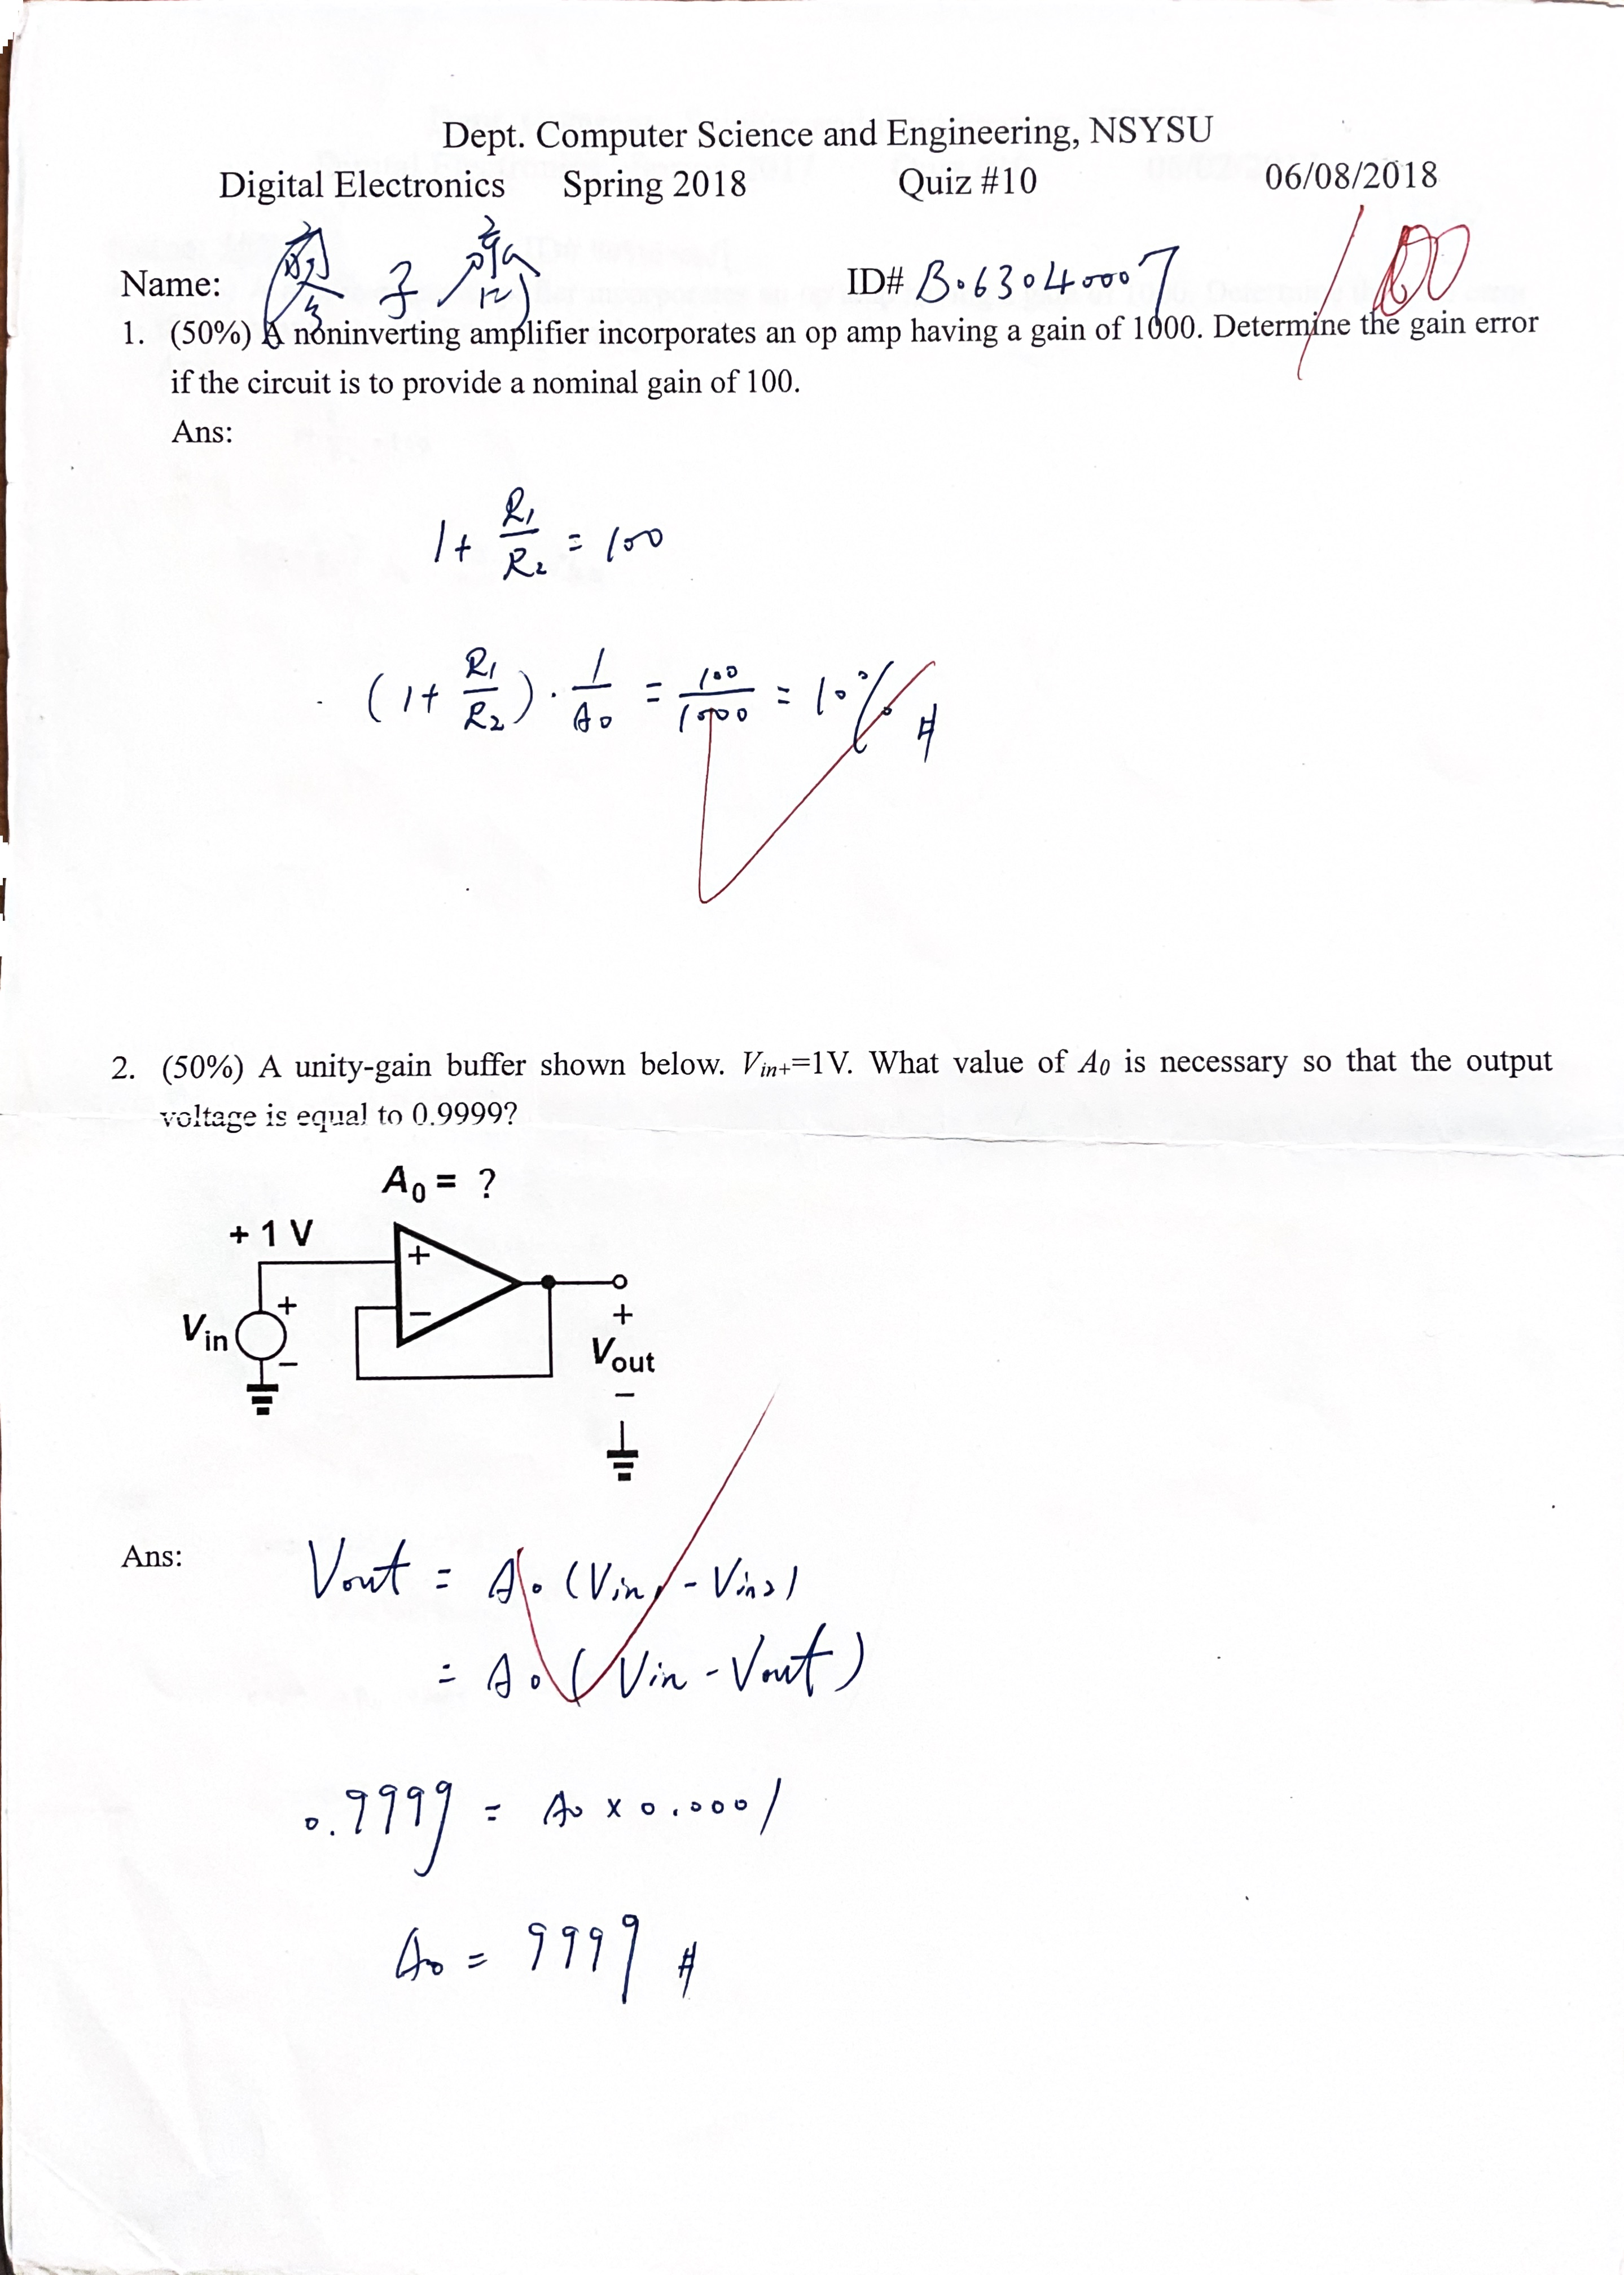 Dept. Computer Science and Engineering, NSYSU
Digital Electronics Spring 2018 Quiz #10 06/08/2018
100
Name: 子 ID# B063040007
1. (50%) A noninverting amplifier incorporates an op amp having a gain of 1000. Determine the gain error
if the circuit is to provide a nominal gain of 100.
Ans:
1 + R1/R2 = 100
(1 + R1/R2) · 1/A0 = 100/1000 = 10% #
2. (50%) A unity-gain buffer shown below. Vin+=1V. What value of A0 is necessary so that the output
voltage is equal to 0.9999?
A0 = ?
+ 1 V
+
−
Vin
+
−
+
Vout
−
Ans:
Vout = A0 (Vin1 - Vin2)
= A0 (Vin - Vout)
0.9999 = A0 × 0.0001
A0 = 9999 #